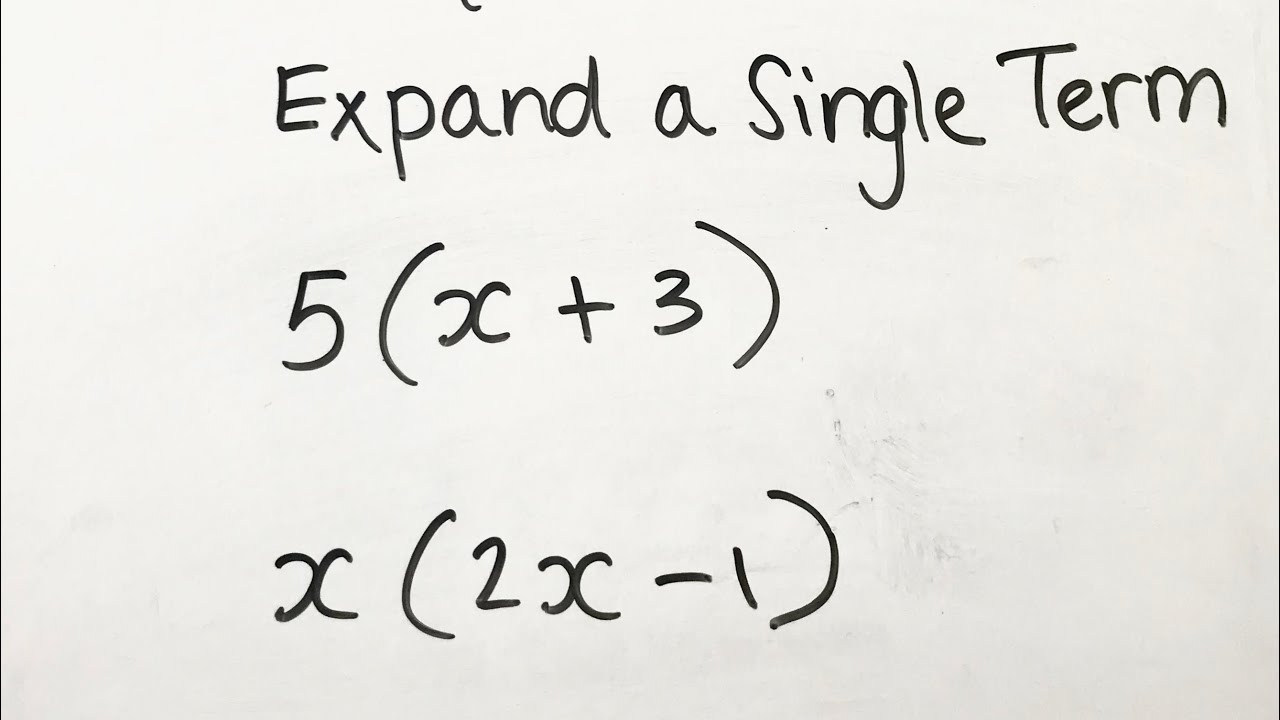 Expand a Single Term
5(x + 3)
x(2x - 1)